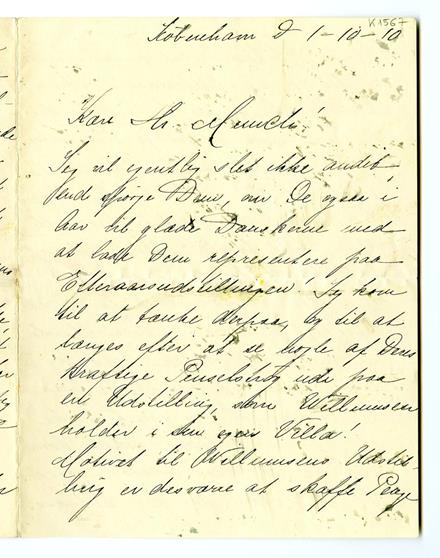 K1567
København D 1-10-10
Kære Hr Munch!
Jeg vil egentlig slet ikke andet
end spørge Dem, om De ogsaa i
Aar vil glæde Danskerne ved
at lade Dem repræsentere paa
Efteraarsudstillingen! Jeg kom
til at tænke derpaa, og til at
længes efter at se nogle af Deres
kraftige Penselstrøg ude paa
en Udstilling, som Willumsen
holder i sin egen Villa!
Motivet til Willumsens Udstil-
ling er desværre at skaffe Penge